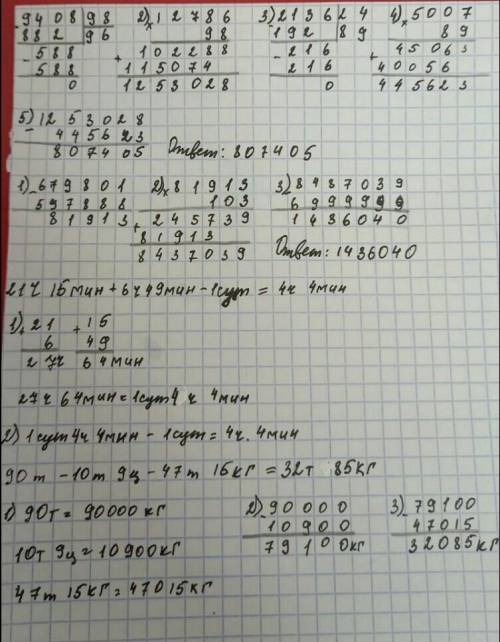 9408|98 2) ×12786 3) -213624 4) ×5007
-882 |96 98 -192 |89 89
-588 +102288 -216 +45063
588 115074 216 40056
0 1253028 0 445623
5) 1253028
- 445623
807405 Ответ: 807405
1) -679801 2) ×81913 3) -8437039
597888 103 6999999
81913 +245739 1436040
81913
8437039 Ответ: 1436040
21ч 15мин + 6ч 49мин - 1сут = 4ч 4мин
1) +21 +15
6 49
27ч 64мин
27ч 64мин = 1сут 4ч 4мин
2) 1сут 4ч 4мин - 1сут = 4ч. 4мин
90т - 10т 9ц - 47т 15кг = 32т 85кг
1) 90т = 90000кг 2) -90000 3) -79100
10900 47015
10т 9ц = 10900кг 79100кг 32085кг
47т 15кг = 47015кг